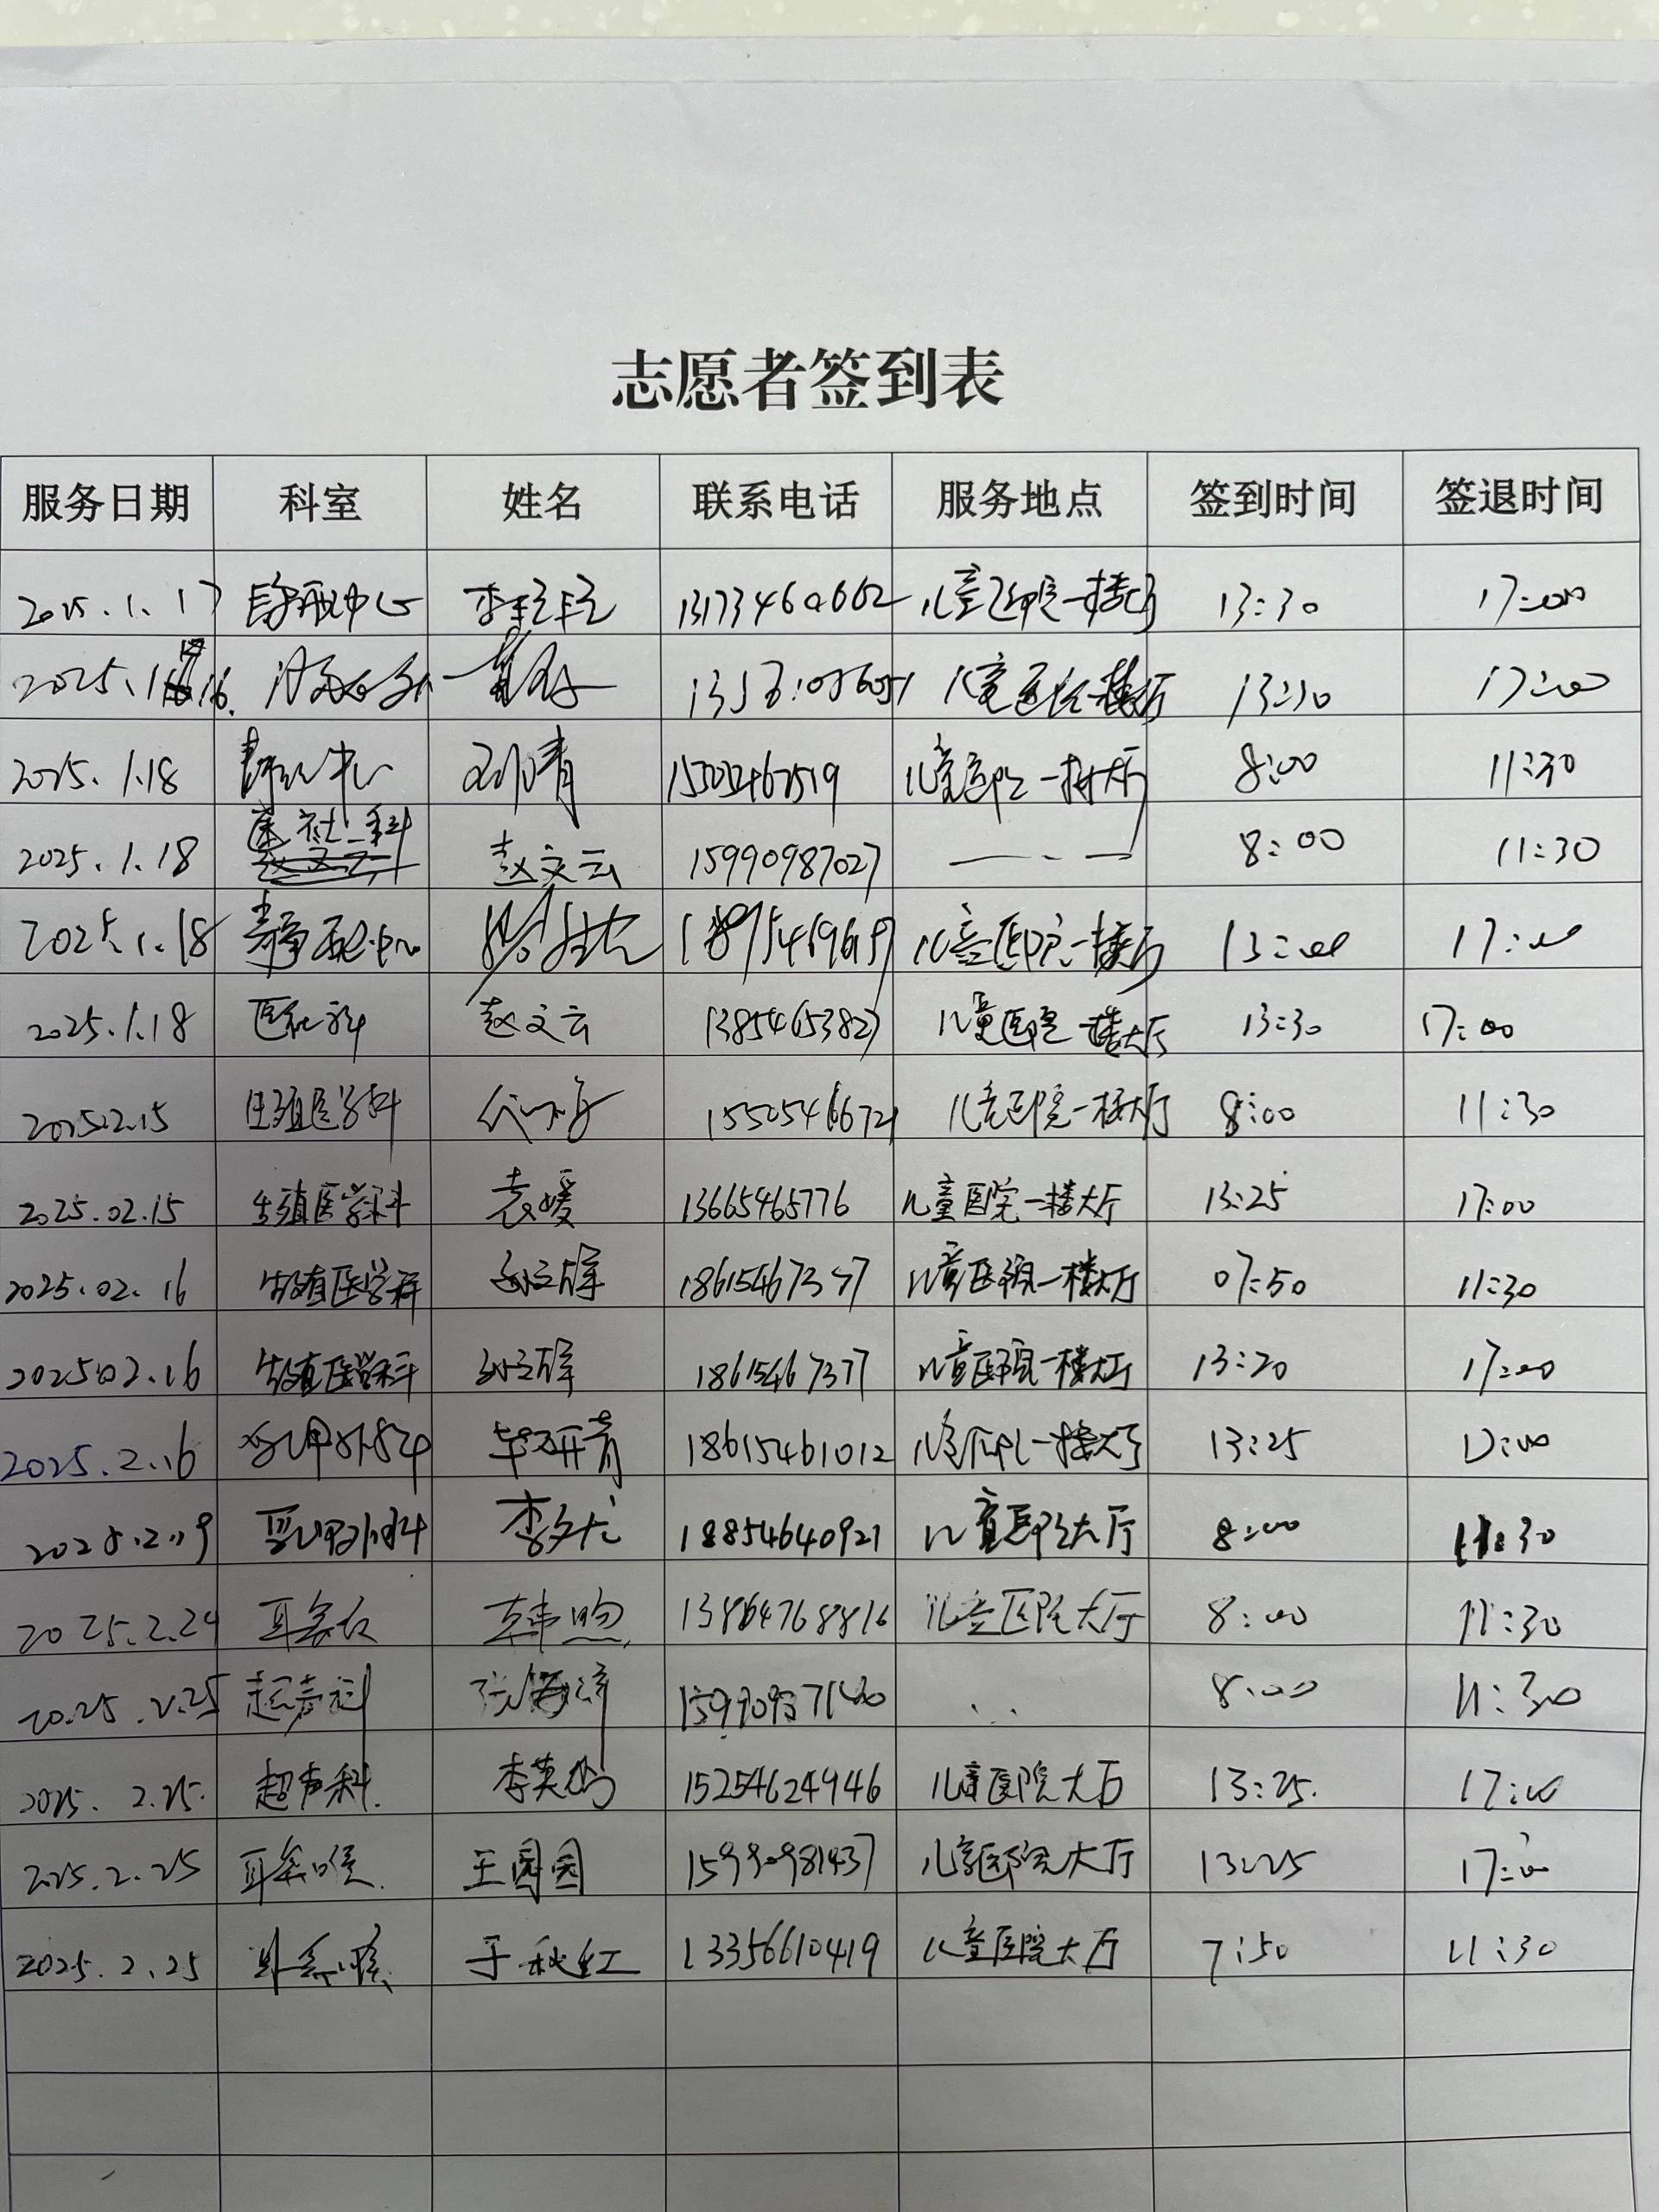 志愿者签到表
服务日期 科室 姓名 联系电话 服务地点 签到时间 签退时间
2025.1.17 静配中心 李 13173460662 儿童医院一楼厅 13:30 17:00
2025.1.16. 儿童医院一楼大厅 13:30 17:00
2025.1.18 静配中心 刘青 儿童医院一楼大厅 8:00 11:30
2025.1.18 医社科 赵文云 15990987027 8:00 11:30
2025.1.18 静配中心 儿童医院一楼厅 13:00 17:00
2025.1.18 医社科 赵文云 13854653827 儿童医院一楼大厅 13:30 17:00
2025.2.15 生殖医学科 15505466721 儿童医院一楼大厅 8:00 11:30
2025.02.15 生殖医学科 袁媛 13665465776 儿童医院一楼大厅 13:25 17:00
2025.02.16 生殖医学科 儿童医院一楼大厅 07:50 11:30
2025.02.16 生殖医学科 18615467377 儿童医院一楼大厅 13:20 17:00
2025.2.16 乳甲外科 毕研青 18615461012 儿童医院一楼大厅 13:25 17:00
2025.2.19 乳甲外科 李文 18854640921 儿童医院大厅 8:00 11:30
2025.2.24 韩煦 13864768816 儿童医院大厅 8:00 11:30
2025.2.25 超声科 张海 8:00 11:30
2025.2.25. 超声科. 李英 15254624946 儿童医院大厅 13:25. 17:00
2025.2.25 耳鼻喉. 王园园 15990981437 儿童医院大厅 13:25 17:00
2025.2.25 耳鼻喉 于秋红 13356610419 儿童医院大厅 7:50 11:30